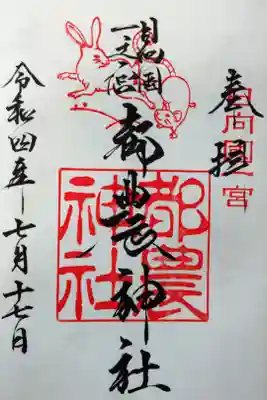 奉拝
日向國一之宮
都農神社
都農神社
令和四年七月十七日